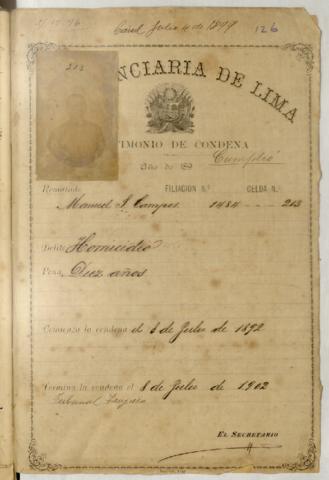 Julio 4 de 1899
126
213
NCIARIA DE LIMA
TIMONIO DE CONDENA
Año de 189
Cumplió
Rematado FILIACION N.º CELDA N.º
Manuel J. Campos 1484 213
Delito Homicidio
Pena, Diez años
Comienza la condena el 8 de Julio de 1892
Termina la condena el 8 de Julio de 1902
Tribunal
EL SECRETARIO